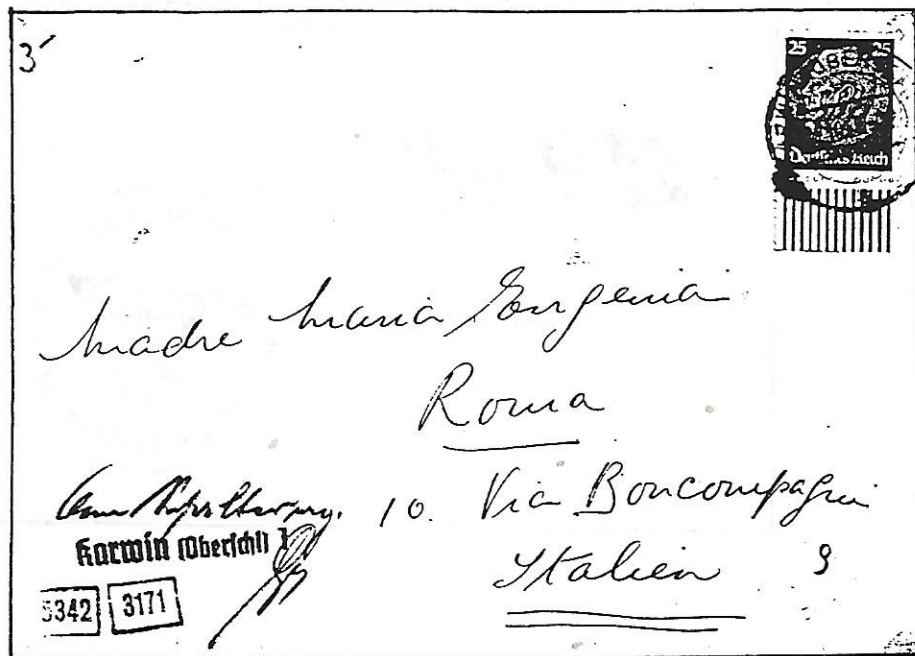 3
25 25
Deutsches Reich
Madre Maria Eugenia
Roma
10. Via Boncompagni
Karwin (Oberschl)
Italien 9
5342 3171